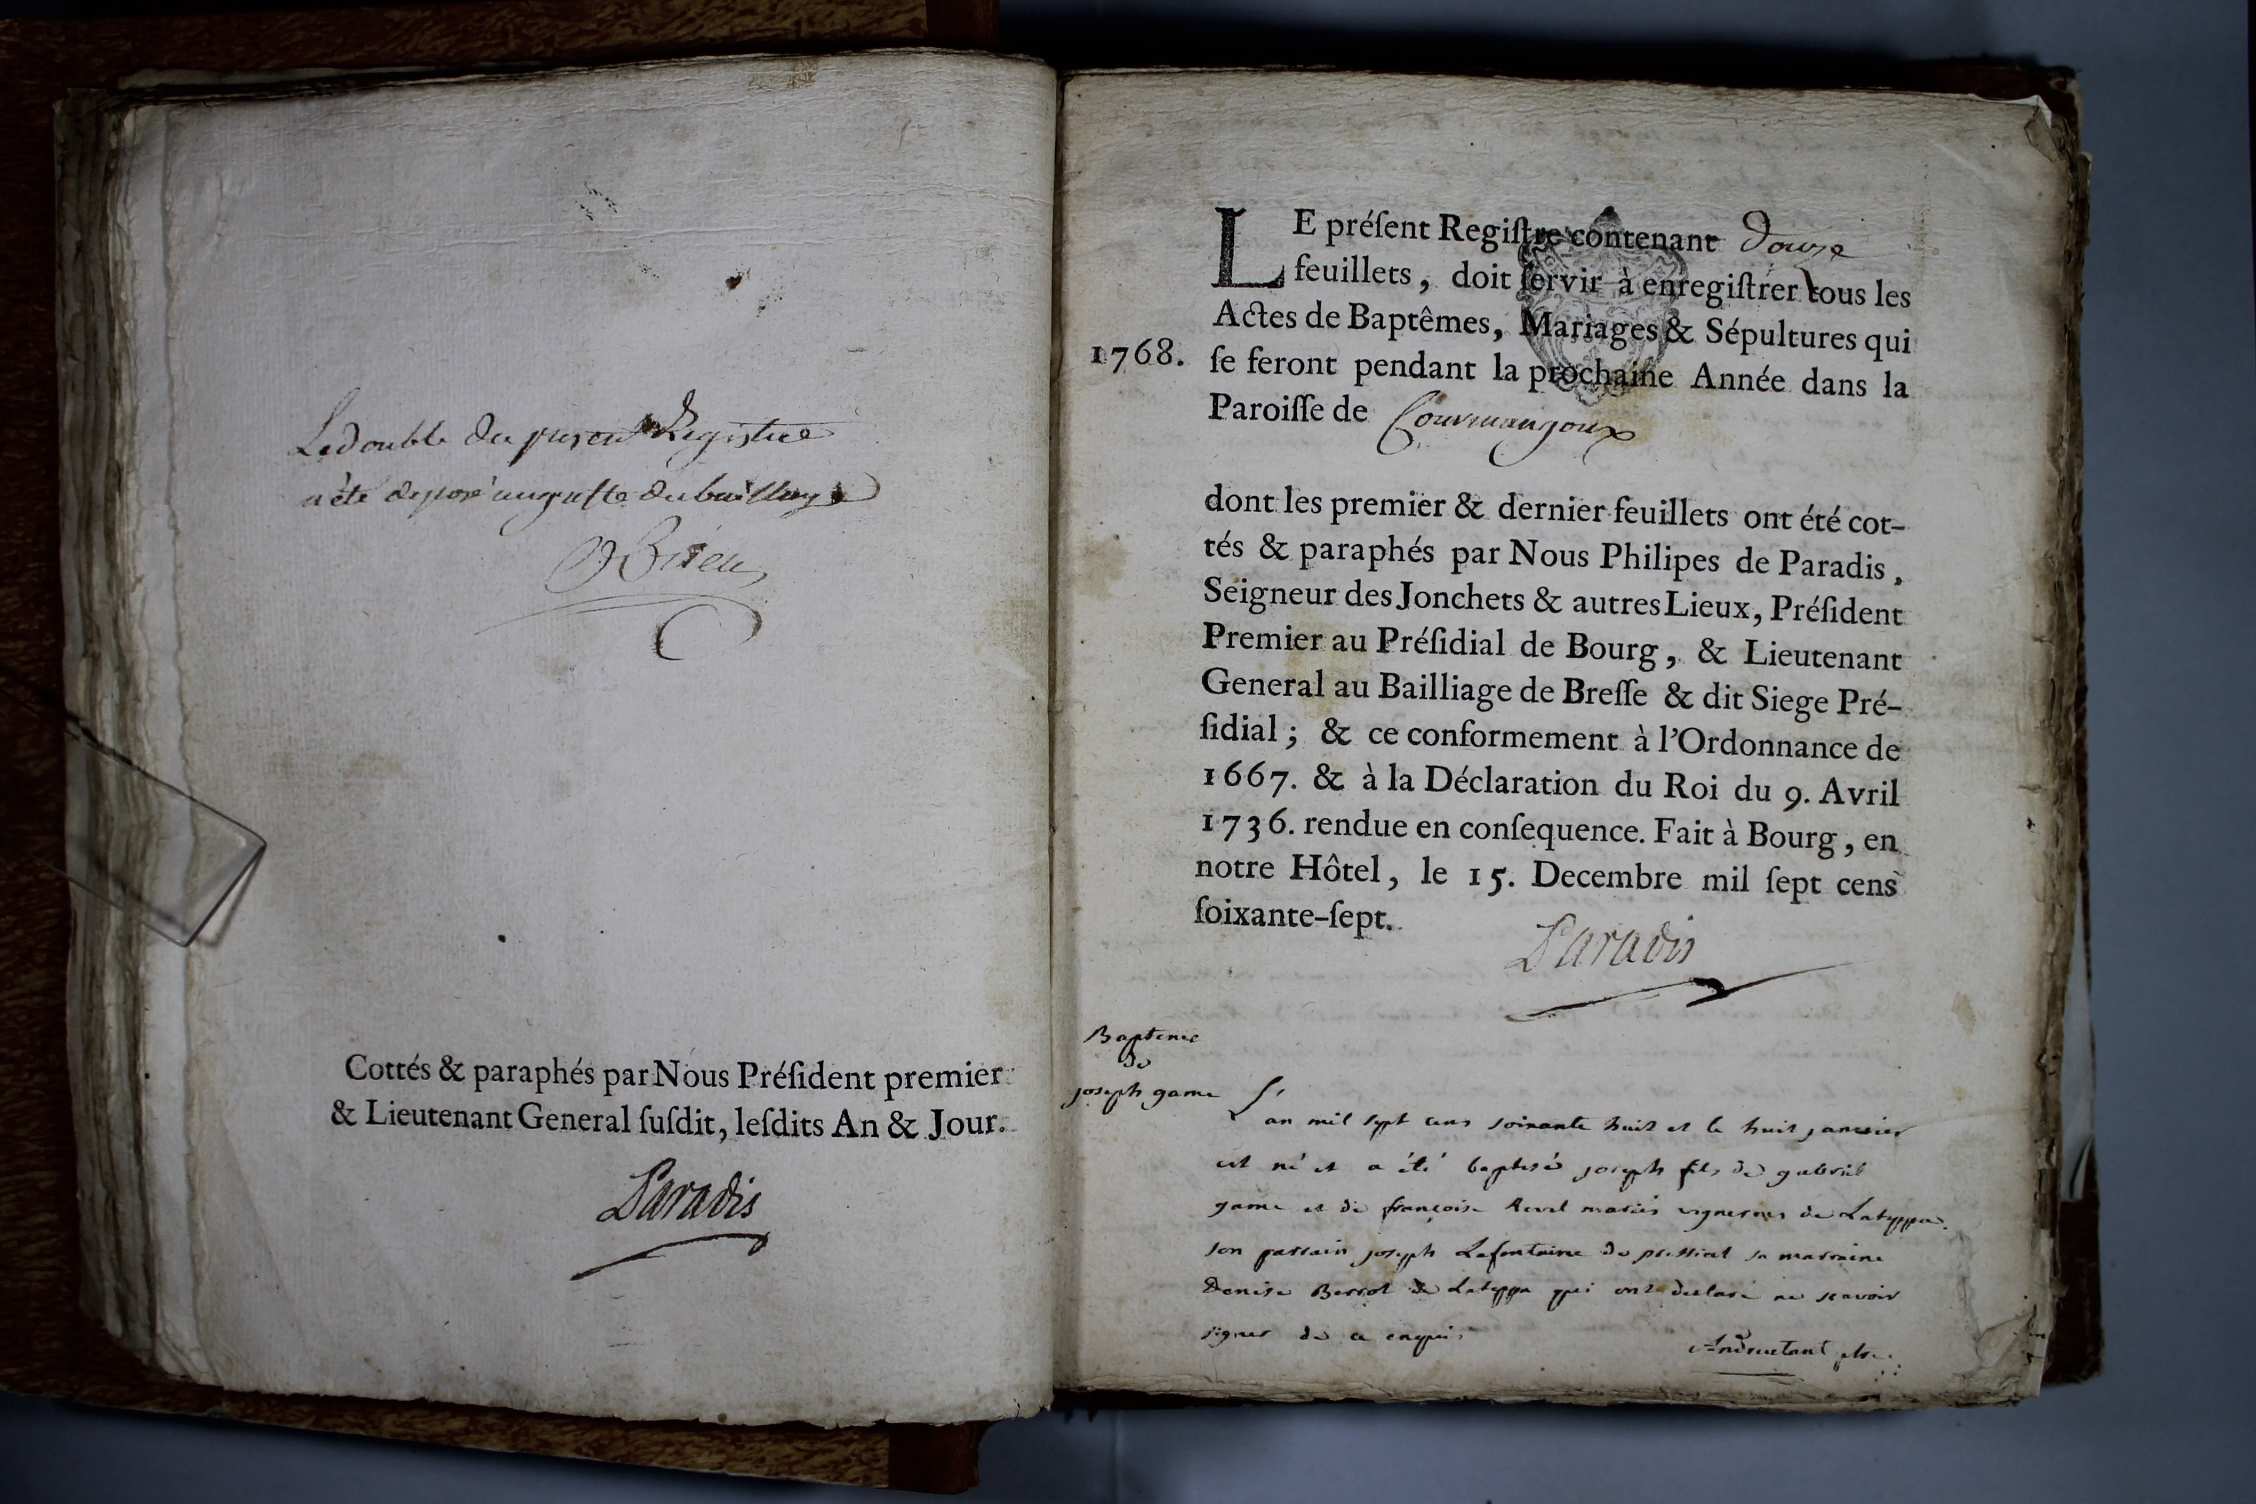 Le double du present Registre
a été deposé au greffe du bailliage
Cottés & paraphés par Nous Préſident premier
& Lieutenant General ſuſdit, leſdits An & Jour.
Paradis
LE préſent Regiſtre contenant douze
feuillets, doit ſervir à enregiſtrer tous les
Actes de Baptêmes, Mariages & Sépultures qui
1768. ſe feront pendant la prochaine Année dans la
Paroiſſe de Courmangoux
dont les premier & dernier feuillets ont été cot-
tés & paraphés par Nous Philipes de Paradis,
Seigneur des Jonchets & autres Lieux, Préſident
Premier au Préſidial de Bourg, & Lieutenant
General au Bailliage de Breſſe & dit Siege Pré-
ſidial; & ce conformement à l'Ordonnance de
1667. & à la Déclaration du Roi du 9. Avril
1736. rendue en conſequence. Fait à Bourg, en
notre Hôtel, le 15. Decembre mil ſept cens
ſoixante-ſept.
Paradis
Bapteme
de
joseph game
L'an mil sept cens soixante huit et le huit janvier
est né et a été baptisé joseph fils de gabriel
game et de françoise Revel mariés vignerons de Lateyppa.
son parrain joseph Lafontaine de pressiat sa marraine
Denise de Lateyppa qui ont declaré ne scavoir
signer de ce enquis